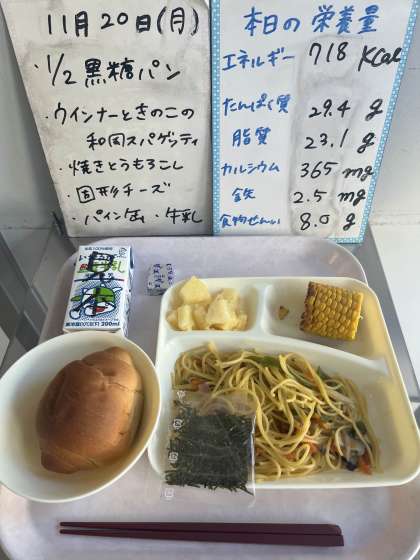 11月20日(月)
・1/2黒糖パン
・ウインナーときのこの
和風スパゲッティ
・焼きとうもろこし
・固形チーズ
・パイン缶・牛乳
本日の栄養量
エネルギー 718 Kcal
たんぱく質 29.4 g
脂質 23.1 g
カルシウム 365 mg
鉄 2.5 mg
食物せんい 8.0 g
200ml